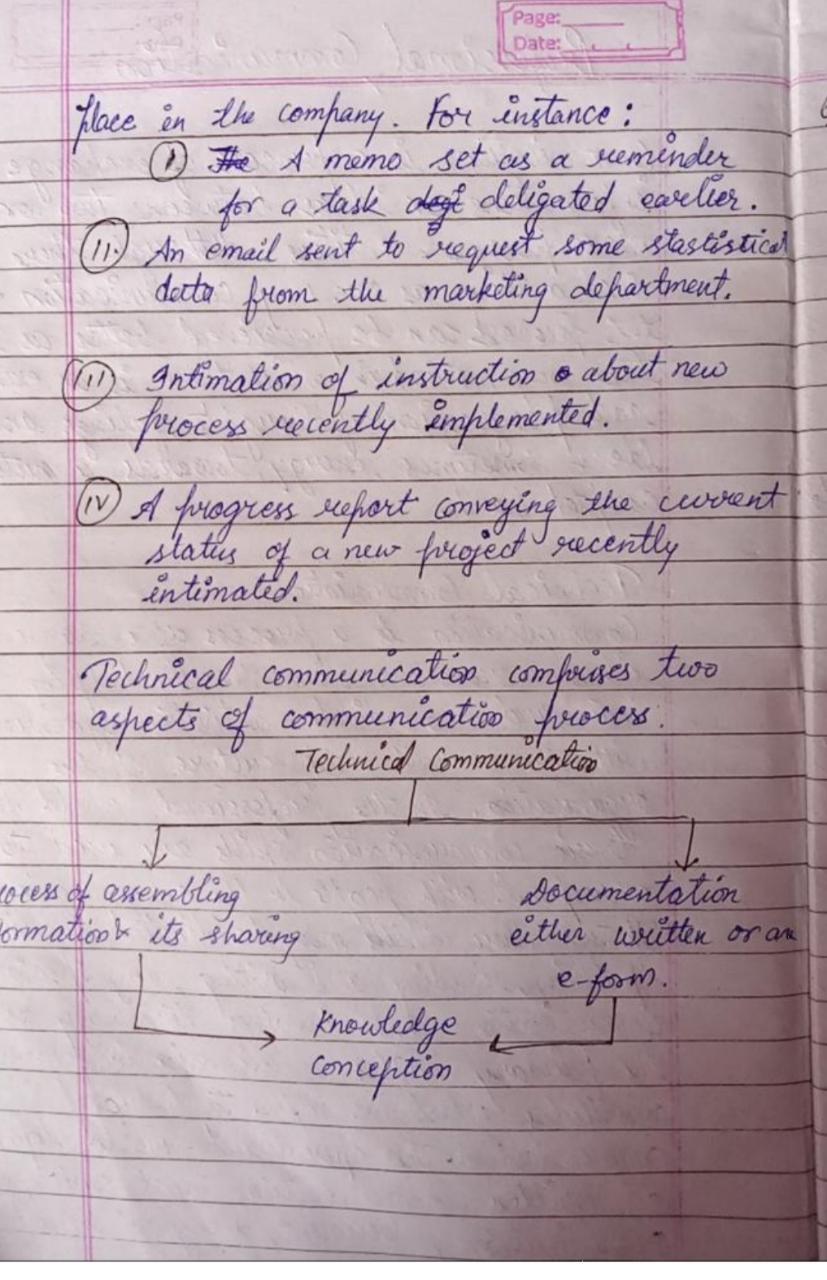 Page:
Date:
place in the company. For instance:
(I) The A memo set as a reminder
for a task degi deligated earlier.
(II). An email sent to request some stastistical
data from the marketing department.
(III) Intimation of instruction about new
process recently implemented.
(IV) A progress report conveying the current
status of a new project recently
intimated.
Technical communication comprises two
aspects of communication process.
Technical Communication
ocess of assembling
ormation & its sharing
Documentation
either written or an
e-form.
Knowledge
Conception